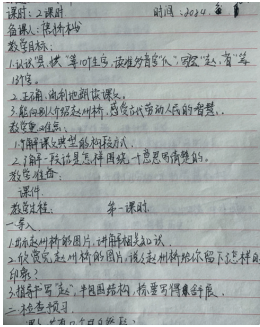 课时：2课时 时间：2024
备课人：
教学目标：
1.认识"县、拱"等10个生字，读准多音字"爪"，写"赵、省"等
13个字。
2.正确、流利地朗读课文。
3.能向别人介绍赵州桥，感受古代劳动人民的智慧。
教学重难点：
1.了解课文典型的构段方式。
2.了解一段话是怎样围绕一个意思写清楚的。
教学准备：
课件
教学过程： 第一课时
一、导入
1.出示赵州桥的图片，讲解相关知识。
2.欣赏完赵州桥的图片，说说赵州桥给你留下怎样的
印象？
3.指导书写"赵"，半包围结构，捺要写得舒展。
二、检查预习